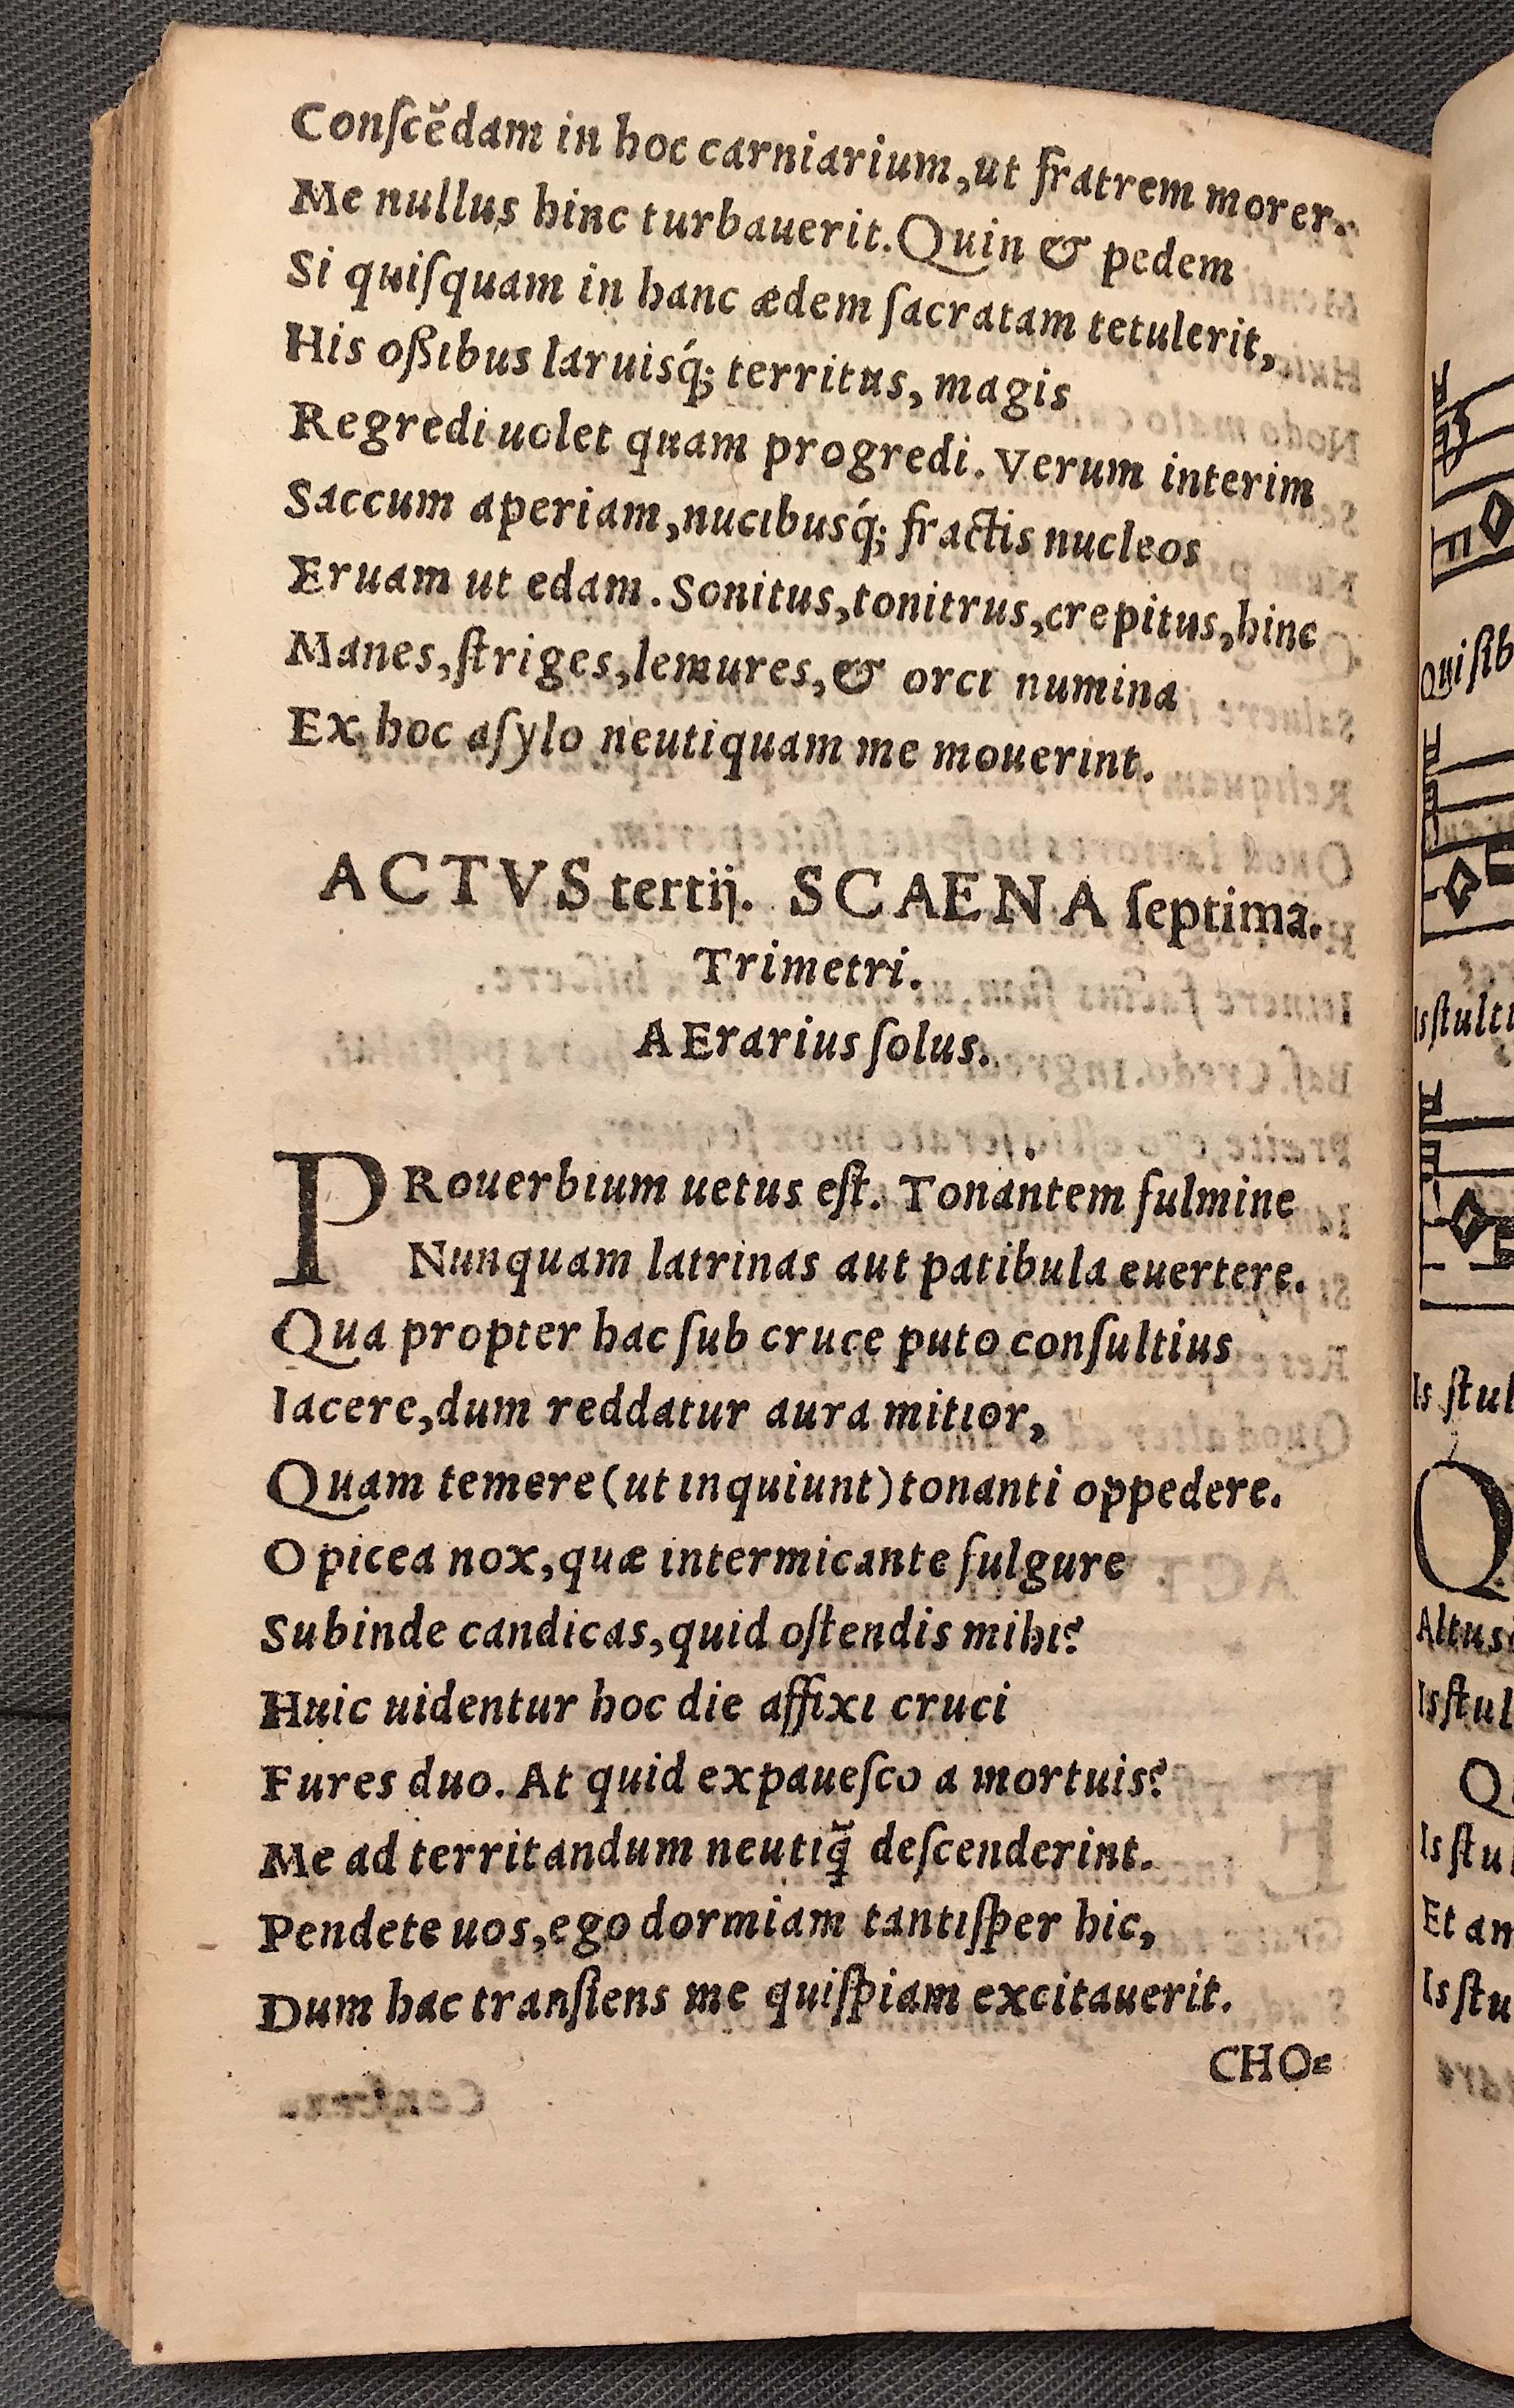 Conſcẽdam in hoc carniarium, ut fratrem morer.
Me nullus hinc turbauerit. Quin & pedem
Si quiſquam in hanc ædem ſacratam tetulerit,
His oßibus laruisq́; territus, magis
Regredi uolet quam progredi. Verum interim
Saccum aperiam, nucibusq́; fractis nucleos
Eruam ut edam. Sonitus, tonitrus, crepitus, hinc
Manes, ſtriges, lemures, & orci numina
Ex hoc aſylo neutiquam me mouerint.
ACTVS tertij. SCAENA ſeptima.
Trimetri.
AErarius ſolus.
PRouerbium uetus eſt. Tonantem fulmine
Nunquam latrinas aut patibula euertere.
Qua propter hac ſub cruce puto conſultius
Iacere, dum reddatur aura mitior,
Quam temere (ut inquiunt) tonanti oppedere.
O picea nox, quæ intermicante fulgure
Subinde candicas, quid oſtendis mihi?
Huic uidentur hoc die affixi cruci
Fures duo. At quid expaueſco a mortuis?
Me ad territandum neutiq̃ deſcenderint.
Pendete uos, ego dormiam tantiſper hic,
Dum hac tranſiens me quiſpiam excitauerit.
CHO=
Qui ſib
Is ſtulti
Is ſtul
Q
Altus
Is ſtul
Q
Is ſtu
Et am
Is ſtu